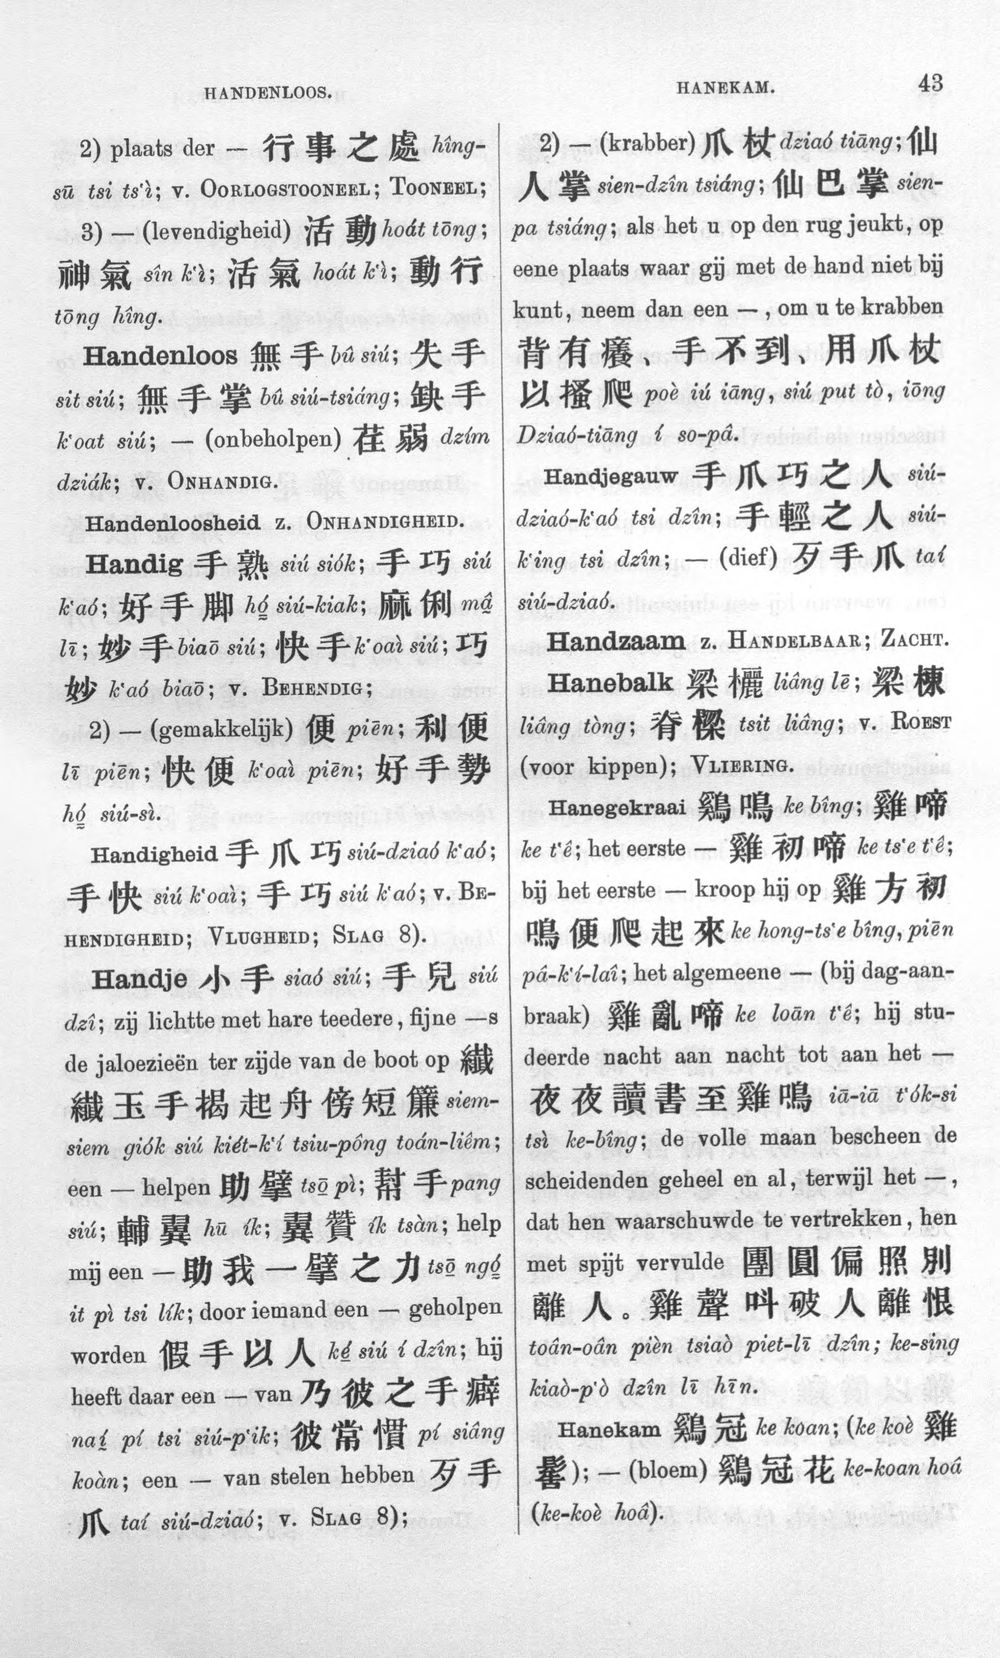 HANDENLOOS.
HANEKAM.
43
2) plaats der — 行事之處 hîng-
sū tsi ts'ì; v. OORLOGSTOONEEL; TOONEEL;
3) — (levendigheid) 活動 hoát tōng;
神氣 sîn k'ì; 活氣 hoát k'ì; 動行
tōng hîng.
Handenloos 無手 bû siú; 失手
sit siú; 無手掌 bû siú-tsiáng; 缺手
k'oat siú; — (onbeholpen) 荏弱 dzím
dziák; v. ONHANDIG.
Handenloosheid z. ONHANDIGHEID.
Handig 手熟 siú siók; 手巧 siú
k'aó; 好手脚 hó̤ siú-kiak; 麻俐 mâ̤
lī; 妙手 biaō siú; 快手 k'oaì siú; 巧
妙 k'aó biaō; v. BEHENDIG;
2) — (gemakkelijk) 便 piēn; 利便
lī piēn; 快便 k'oaì piēn; 好手勢
hó̤ siú-sì.
Handigheid 手爪巧 siú-dziaó k'aó;
手快 siú k'oaì; 手巧 siú k'aó; v. BE-
HENDIGHEID; VLUGHEID; SLAG 8).
Handje 小手 siaó siú; 手兒 siú
dzî; zij lichtte met hare teedere, fijne —s
de jaloezieën ter zijde van de boot op 纖
纖玉手揭起舟傍短簾 siem-
siem giók siú kiét-k'í tsiu-pông toán-liêm;
een — helpen 助擘 tsō̤ pì; 幇手 pang
siú; 輔翼 hū ík; 翼贊 ík tsàn; help
mij een — 助我一擘之力 tsō̤ ngó̤
it pì tsi lík; door iemand een — geholpen
worden 假手以人 ké̤ siú í dzîn; hij
heeft daar een — van 乃彼之手癖
naí̤ pí tsi siú-p'ik; 彼常慣 pí siâng
koàn; een — van stelen hebben 歹手
爪 taí siú-dziaó; v. SLAG 8);
2) — (krabber) 爪杖 dziaó tiāng; 仙
人掌 sien-dzîn tsiáng; 仙巴掌 sien-
pa tsiáng; als het u op den rug jeukt, op
eene plaats waar gij met de hand niet bij
kunt, neem dan een —, om u te krabben
背有癢、手不到、用爪杖
以搔爬 poè iú iāng, siú put tò, iōng
Dziaó-tiāng í so-pâ.
Handjegauw 手爪巧之人 siú-
dziaó-k'aó tsi dzîn; 手輕之人 siú-
k'ing tsi dzîn; — (dief) 歹手爪 taí
siú-dziaó.
Handzaam z. HANDELBAAR; ZACHT.
Hanebalk 梁欐 liâng lē; 梁棟
liâng tòng; 脊樑 tsit liâng; v. ROEST
(voor kippen); VLIERING.
Hanegekraai 鷄鳴 ke bîng; 雞啼
ke t'ê; het eerste — 雞初啼 ke ts'e t'ê;
bij het eerste — kroop hij op 雞方初
鳴便爬起來 ke hong-ts'e bîng, piēn
pâ-k'í-laî; het algemeene — (bij dag-aan-
braak) 雞亂啼 ke loān t'ê; hij stu-
deerde nacht aan nacht tot aan het —
夜夜讀書至雞鳴 iā-iā t'ók-si
tsì ke-bîng; de volle maan bescheen de
scheidenden geheel en al, terwijl het —,
dat hen waarschuwde te vertrekken, hen
met spijt vervulde 團圓偏照別
離人。雞聲叫破人離恨
toân-oân pièn tsiaò piet-lī dzîn; ke-sing
kiaò-p'ò dzîn lī hīn.
Hanekam 鷄冠 ke koan; (ke koè 雞
髻); — (bloem) 鷄冠花 ke-koan hoâ
(ke-koè hoâ).